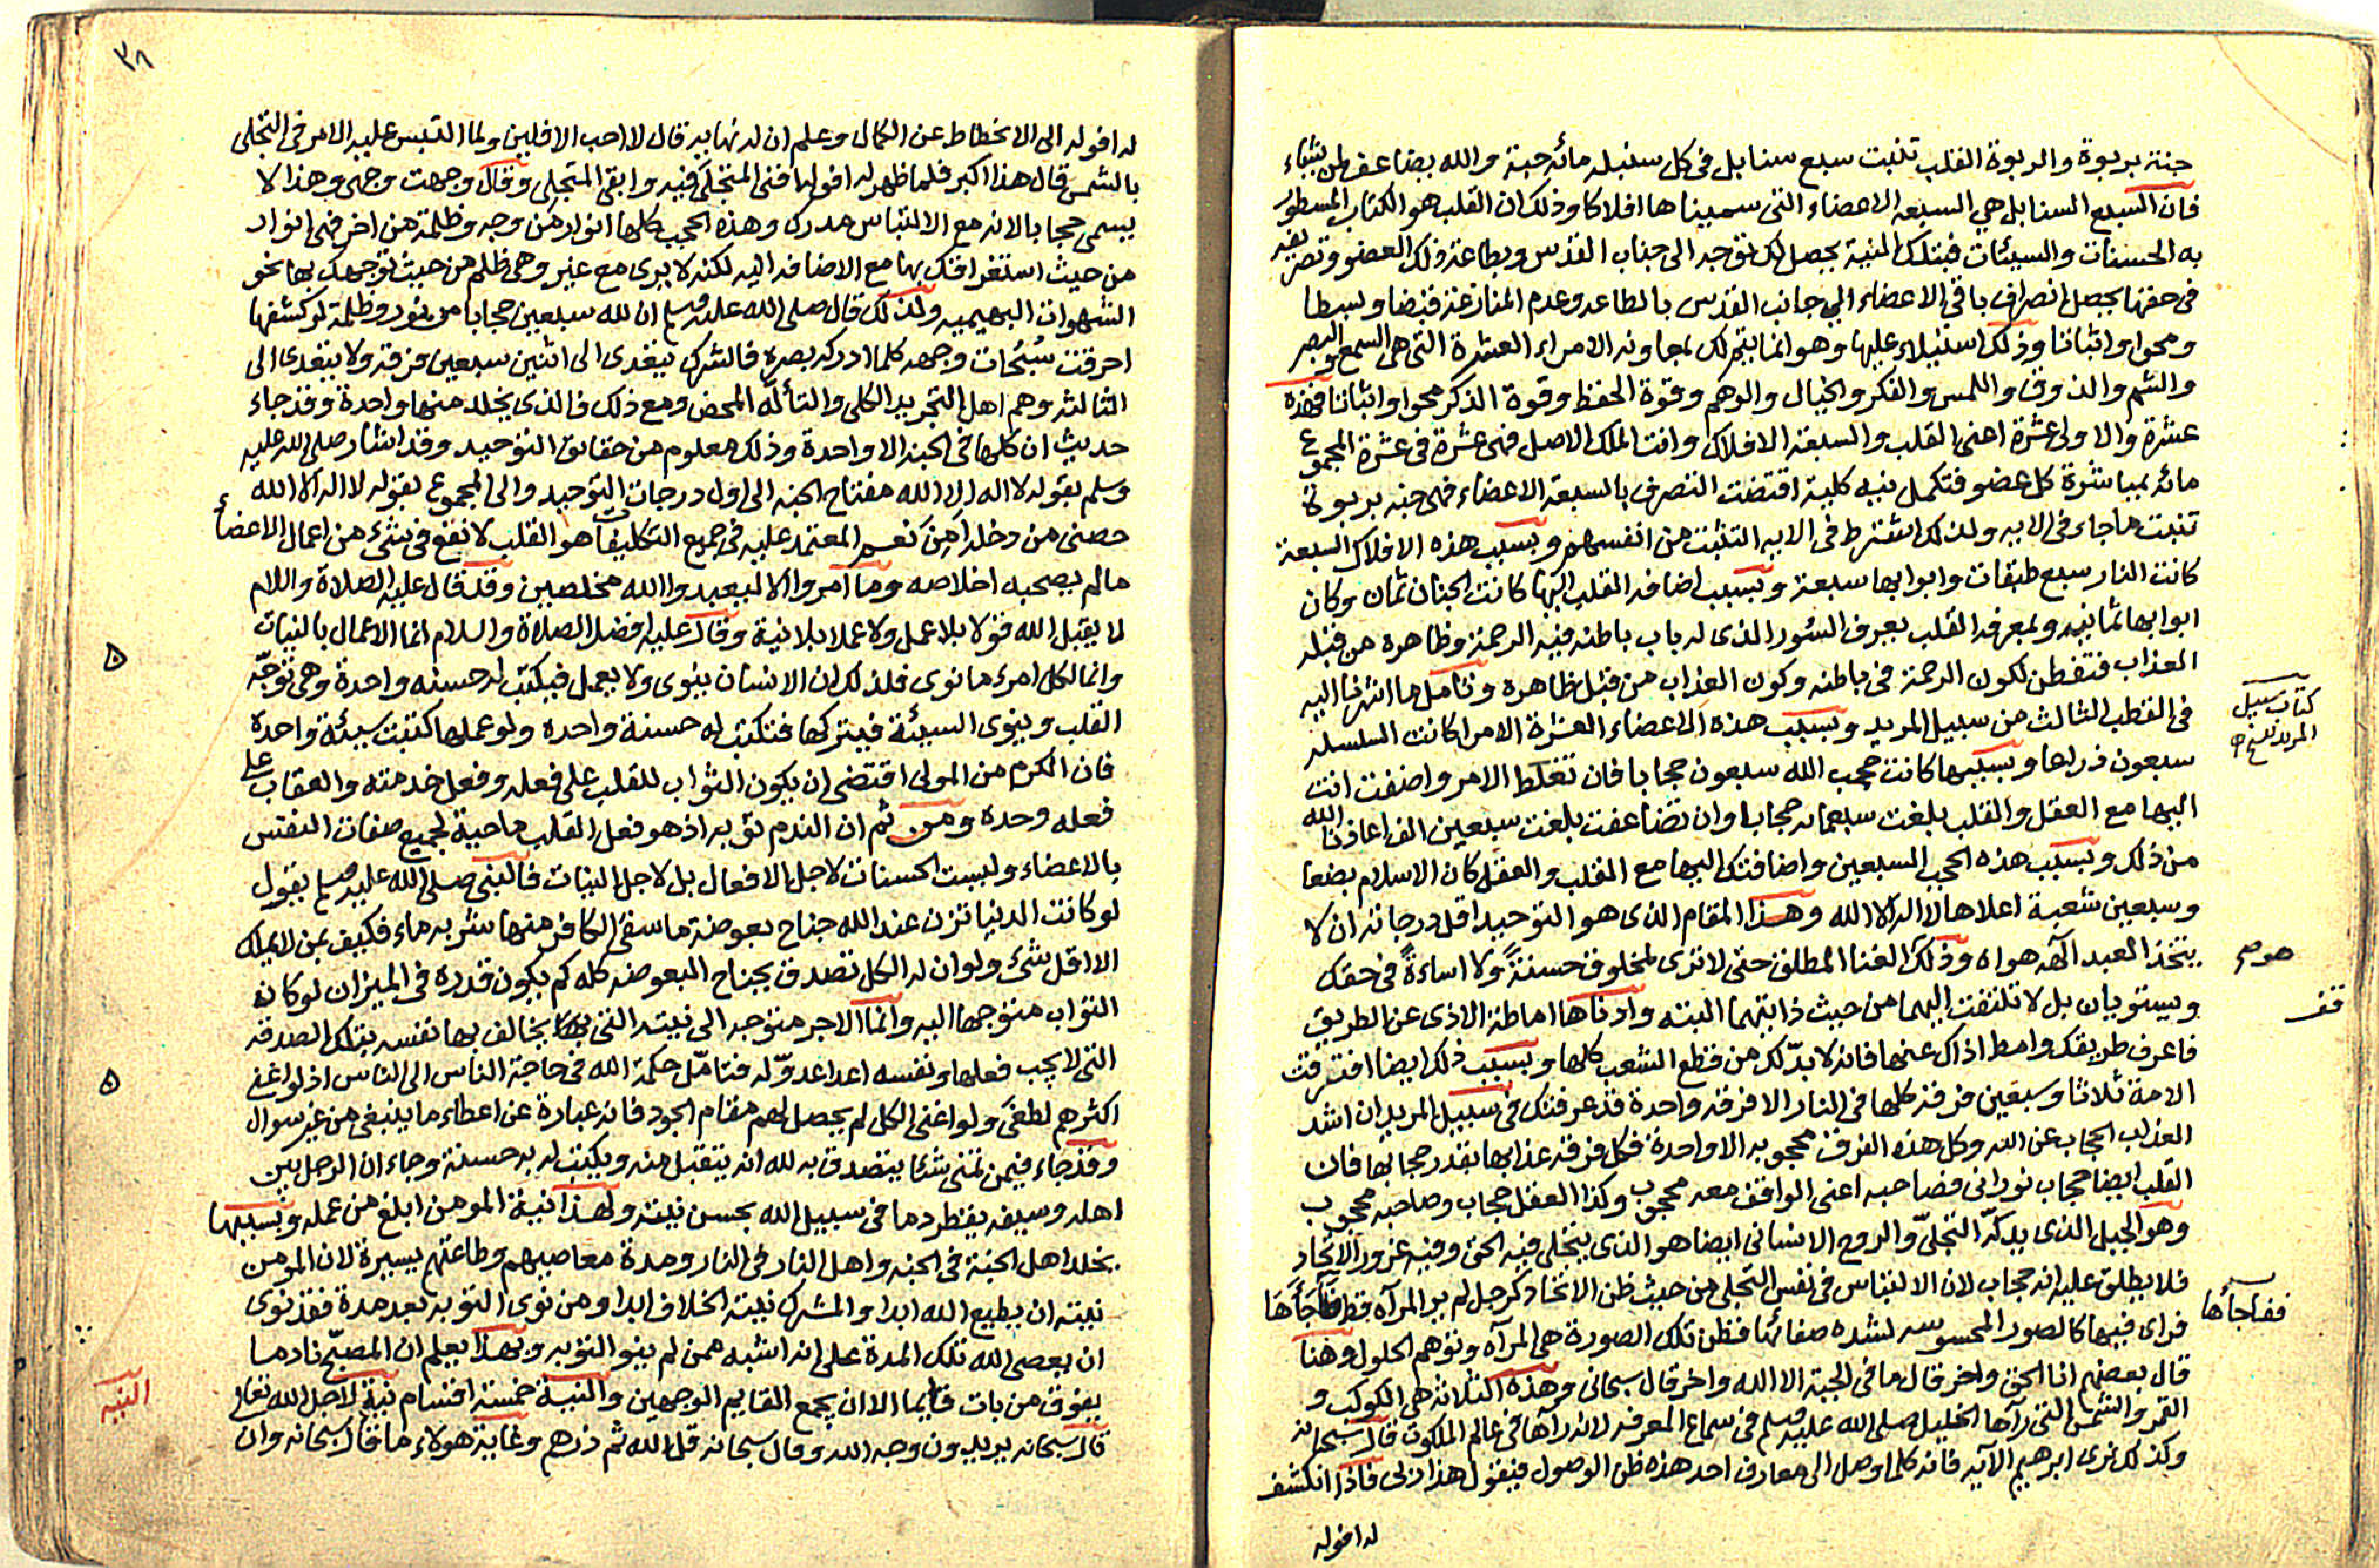 جنة بربوة والربوة القلب تنبت سبع سنابل في كل سنبلة مائة حبة والله يضاعف لمن يشاء
فان السبع السنابل هي السبعة الاعضاء التي سميناها افلاكا وذلك ان القلب هو الكتاب المسطور
به الحسنات والسيئات فبتلك النية يحصل لك توجه الى جناب القدس وبطاعة ذلك العضو وتصريفه
في حقها يحصل انصراف باقي الاعضاء الى جانب القدس بالطاعة وعدم المنازعة قبضا وبسطا
ومحوا واثباتا وذلك استيلاء عليها وهو انما يتم لك بمعاونة الامراء العشرة التي هي السمع والبصر
والشم والذوق واللمس والفكر والخيال والوهم وقوة الحفظ وقوة الذكر محوا واثباتا فهذه
عشرة والاولى عشرة اعني القلب والسبعة الافلاك وانت الملك الاصل فهي عشرة في عشرة المجموع
مائة بمباشرة كل عضو فتكمل نية كلية اقتضت التصرف بالسبعة الاعضاء فهي حبة بربوة
تنبت ما جاء في الاية ولذلك اشترط في الاية التثبت من انفسهم وبسبب هذه الافلاك السبعة
كانت النار سبع طبقات وابوابها سبعة وبسبب اضافة القلب اليها كانت الجنان ثمان وكان
ابوابها ثمانية ولمعرفة القلب يعرف السور الذي له باب باطنه فيه الرحمة وظاهره من قبله
العذاب فتفطن لكون الرحمة في باطنه وكون العذاب من قبل ظاهره وتأمل ما اشرنا اليه
في القطب الثالث من سبيل المريد وبسبب هذه الاعضاء العشرة الامرا كانت السلسلة
كتاب سبيل
المريد للشيخ
سبعون ذراعا وبسببها كانت حجب الله سبعون حجابا فان تغلظ الامر واضفت انت
اليها مع العقل والقلب بلغت سبعمائة حجابا وان تضاعفت بلغت سبعين الف اعاذنا الله
من ذلك وبسبب هذه الحجب السبعين واضافتك اليها مع القلب والعقل كان الاسلام بضعا
وسبعين شعبة اعلاها لا اله الا الله وهذا المقام الذي هو التوحيد اقل درجاته ان لا
يتخذ العبد آلهه هواه وذلك الفنا المطلق حتى لا ترى لمخلوق حسنةً ولا اساءةً في حقك
ويستويان بل لا تلتفت اليهما من حيث ذاتهما البتة وادناها اماطة الاذى عن الطريق
قف
فاعرف طريقك وامط اذاك عنها فانه لا بدّ لك من قطع الشعب كلها وبسبب ذلك ايضا افترقت
الامة ثلاثا وسبعين فرقة كلها في النار الا فرقة واحدة قد عرفتك في سبيل المريد ان اشد
العذاب الحجاب عن الله وكل هذه الفرق محجوبه الا واحدة فكل فرقة عذابها بقدر حجابها فان
القلب ايضا حجاب نوراني فصاحبه اعني الواقف معه محجوب وكذا العقل حجاب وصاحبه محجوب
وهو الجبل الذي يدكّه التجلّي والروح الانساني ايضا هو الذي يتجلى فيه الحق وفيه غرور الاتحاد
فلا يطلق عليه انه حجاب لان الالتباس في نفس التجلي من حيث ظن الاتحاد كرجل لم ير المرآه قط فاجأها
ففاجأها
فراى فيها كالصور المحسوسه لشدة صفائها فظن تلك الصورة هي المرآه وتوهم الحلول وهنا
قال بعضهم انا الحق واخر قال ما في الجبة الا الله واخر قال سبحاني وهذه الثلاثة هي الكوكب و
القمر والشمس التي رآها الخليل صلى الله عليه وسلم في سماء المعرفة لانه رآها في عالم الملكوت قال سبحانه
وكذلك نرى ابرهيم الآيه فانه كلما وصل الى معارف احد هذه ظن الوصول فيقول هذا ربي فاذا انكشف
له افوله
٣٨
له افوله الى الانحطاط عن الكمال وعلم ان له نهاية قال لا احب الافلين ولما التبس عليه الامر في التجلي
بالشمس قال هذا اكبر فلما ظهر له افولها فنى المتجلّى فيه وابقى المتجلى وقال وجهت وجهي وهذا لا
يسمى حجابا لانه مع الالتباس مدرك وهذه الحجب كلها انوار من وجه وظلمة من اخر فهي انوار
من حيث استغراقك بها مع الاضافه اليه لكنه لا يرى مع غير وهي ظلم من حيث توجهك بها نحو
الشهوات البهيميه ولذلك قال صلى الله عليه وسلم ان لله سبعين حجابا من نور وظلمة لو كشفها
احرقت سُبُحات وجهه كلما ادركه بصره فالشرك يتعدى الى اثنين سبعين فرقة ولا يتعدى الى
الثالثة وهم اهل التجريد الكلي والتألّه المحض ومع ذلك فالذي يخلد منها واحدة وقد جاء
حديث ان كلها في الجنه الا واحدة وذلك معلوم من حقائق التوحيد وقد اشار صلى الله عليه
وسلم بقوله لا اله الا الله مفتاح الجنه الى اول درجات التوحيد والى المجموع بقوله لا اله الا الله
حصني من دخله أمن نعم المعتمد عليه في جميع التكليفات هو القلب لا نفع في شيء من اعمال الاعضاء
مالم يصحبه اخلاصه وما امروا الا ليعبدوا الله مخلصين وقد قال عليه الصلاة والسلام
لا يقبل الله قولا بلا عمل ولا عملا بلا نية وقال عليه افضل الصلاة والسلام انما الاعمال بالنيات
وانما لكل امرء ما نوى فلذلك ان الانسان ينوى ولا يعمل فيكتب له حسنه واحدة وهي توجّه
القلب وينوى السيئة فيتركها فتكتب له حسنة واحده ولو عملها كتبت سيئة واحدة
فان الكرم من المولى اقتضى ان يكون الثواب للقلب على فعله وفعل خدمته والعقاب على
فعله وحده ومن ثم ان الندم توبه اذ هو فعل القلب ماحية لجميع صفات النفس
بالاعضاء وليست الحسنات لاجل الافعال بل لاجل النيات فالنبي صلى الله عليه وسلم يقول
لو كانت الدنيا تزن عند الله جناح بعوضة ما سقى الكافر منها شربة ماء فكيف بمن لا يملك
الا اقل شيء ولو ان له الكل تصدق بجناح البعوضه كله كم يكون قدره في الميزان لو كان
الثواب متوجها اليه وانما الاجر متوجه الى نيته التي بها يخالف بها نفسه بتلك الصدقه
التي لا يجب فعلها ونفسه اعدا عدوّ له فتامّل حكمة الله في حاجة الناس الى الناس اذ لو اغنى
اكثرهم لطغى ولو اغنى الكل لم يحصل لهم مقام الجود فانه عبارة عن اعطاء ما ينبغي من غير سوال
وقد جاء فيمن تمنى شئا يتصدق به لله انه يتقبل منه ويكتب له به حسنة وجاء ان الرجل بين
اهله وسيفه يقطر دما في سبيل الله بحسن نيته ولهذا نية المومن ابلغ من عمله وبسببها
يخلد اهل الجنة في الجنه واهل النار في النار ومدة معاصيهم وطاعتهم يسيرة لان المومن
نيته ان يطيع الله ابدا والمشرك نيته الخلاف ابدا ومن نوى التوبه بعد مدة فقد نوى
ان يعصى الله تلك المدة على انه اشبه ممن لم ينو التوبه وبهذا يعلم ان المصبح نادما
يفوق من بات قايما الا ان يجمع القايم الوجهين والنية خمسة اقسام نية لاجل الله تعالى
النيه
قال سبحانه يريدون وجه الله وقال سبحانه قل الله ثم ذرهم وغاية هولاء ما قال سبحانه وان